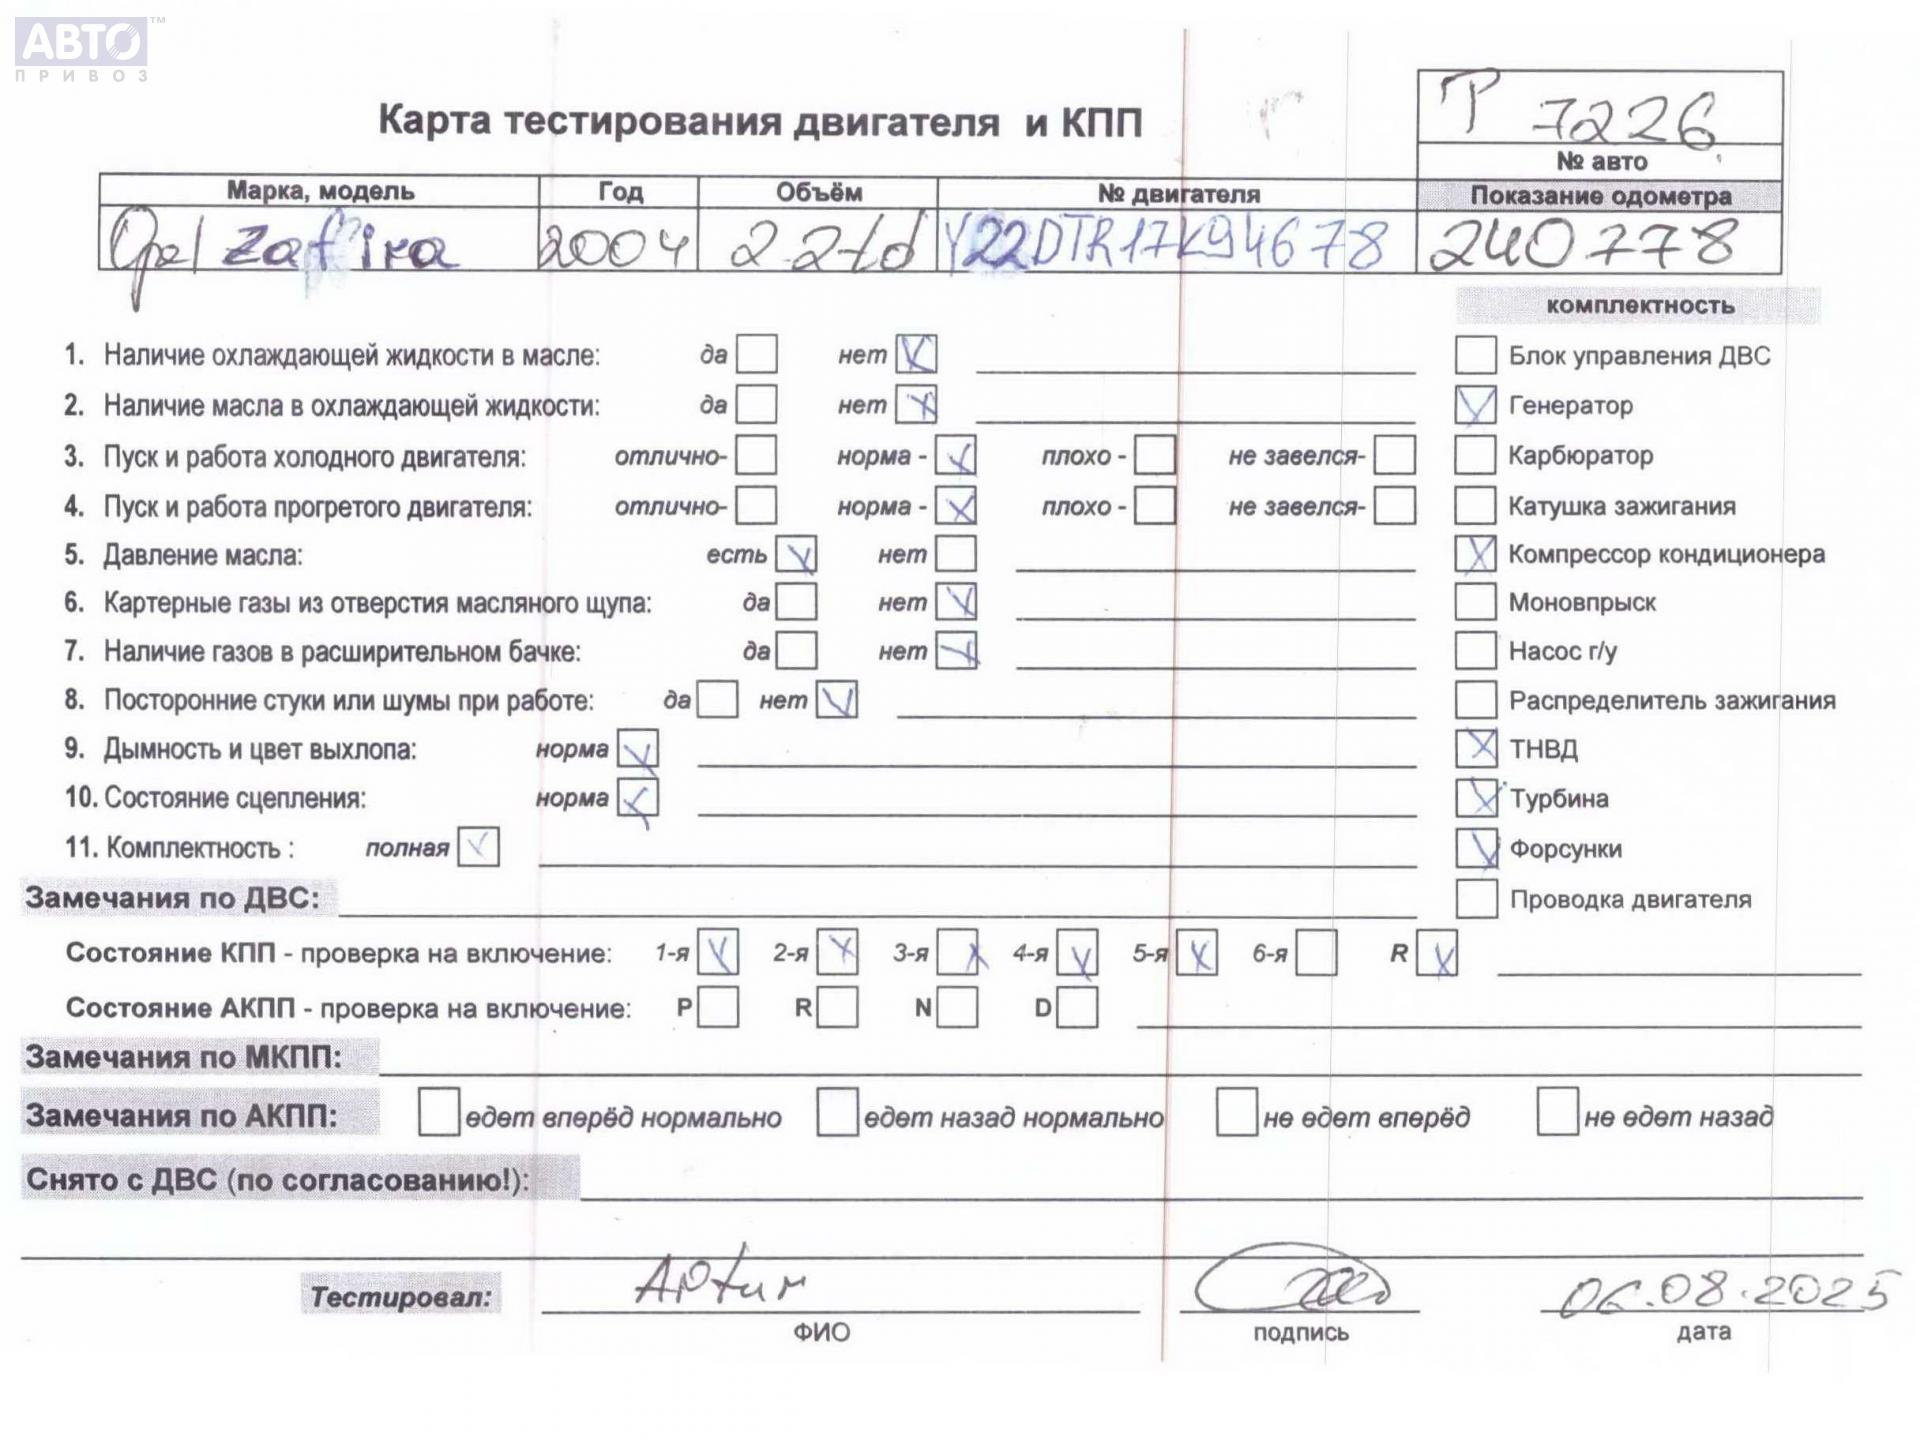 АВТО™
ПРИВОЗ
Карта тестирования двигателя и КПП
Т 7226
№ авто
Марка, модель Год Объём № двигателя Показание одометра
Opel Zafira 2004 2.2td Y22DTR17K94678 240778
комплектность
1. Наличие охлаждающей жидкости в масле: да нет Блок управления ДВС
2. Наличие масла в охлаждающей жидкости: да нет Генератор
3. Пуск и работа холодного двигателя: отлично- норма - плохо - не завелся- Карбюратор
4. Пуск и работа прогретого двигателя: отлично- норма - плохо - не завелся- Катушка зажигания
5. Давление масла: есть нет Компрессор кондиционера
6. Картерные газы из отверстия масляного щупа: да нет Моновпрыск
7. Наличие газов в расширительном бачке: да нет Насос г/у
8. Посторонние стуки или шумы при работе: да нет Распределитель зажигания
9. Дымность и цвет выхлопа: норма ТНВД
10. Состояние сцепления: норма Турбина
11. Комплектность : полная Форсунки
Замечания по ДВС: Проводка двигателя
Состояние КПП - проверка на включение: 1-я 2-я 3-я 4-я 5-я 6-я R
Состояние АКПП - проверка на включение: P R N D
Замечания по МКПП:
Замечания по АКПП: едет вперёд нормально едет назад нормально не едет вперёд не едет назад
Снято с ДВС (по согласованию!):
Тестировал: Artur 06.08.2025
ФИО подпись дата